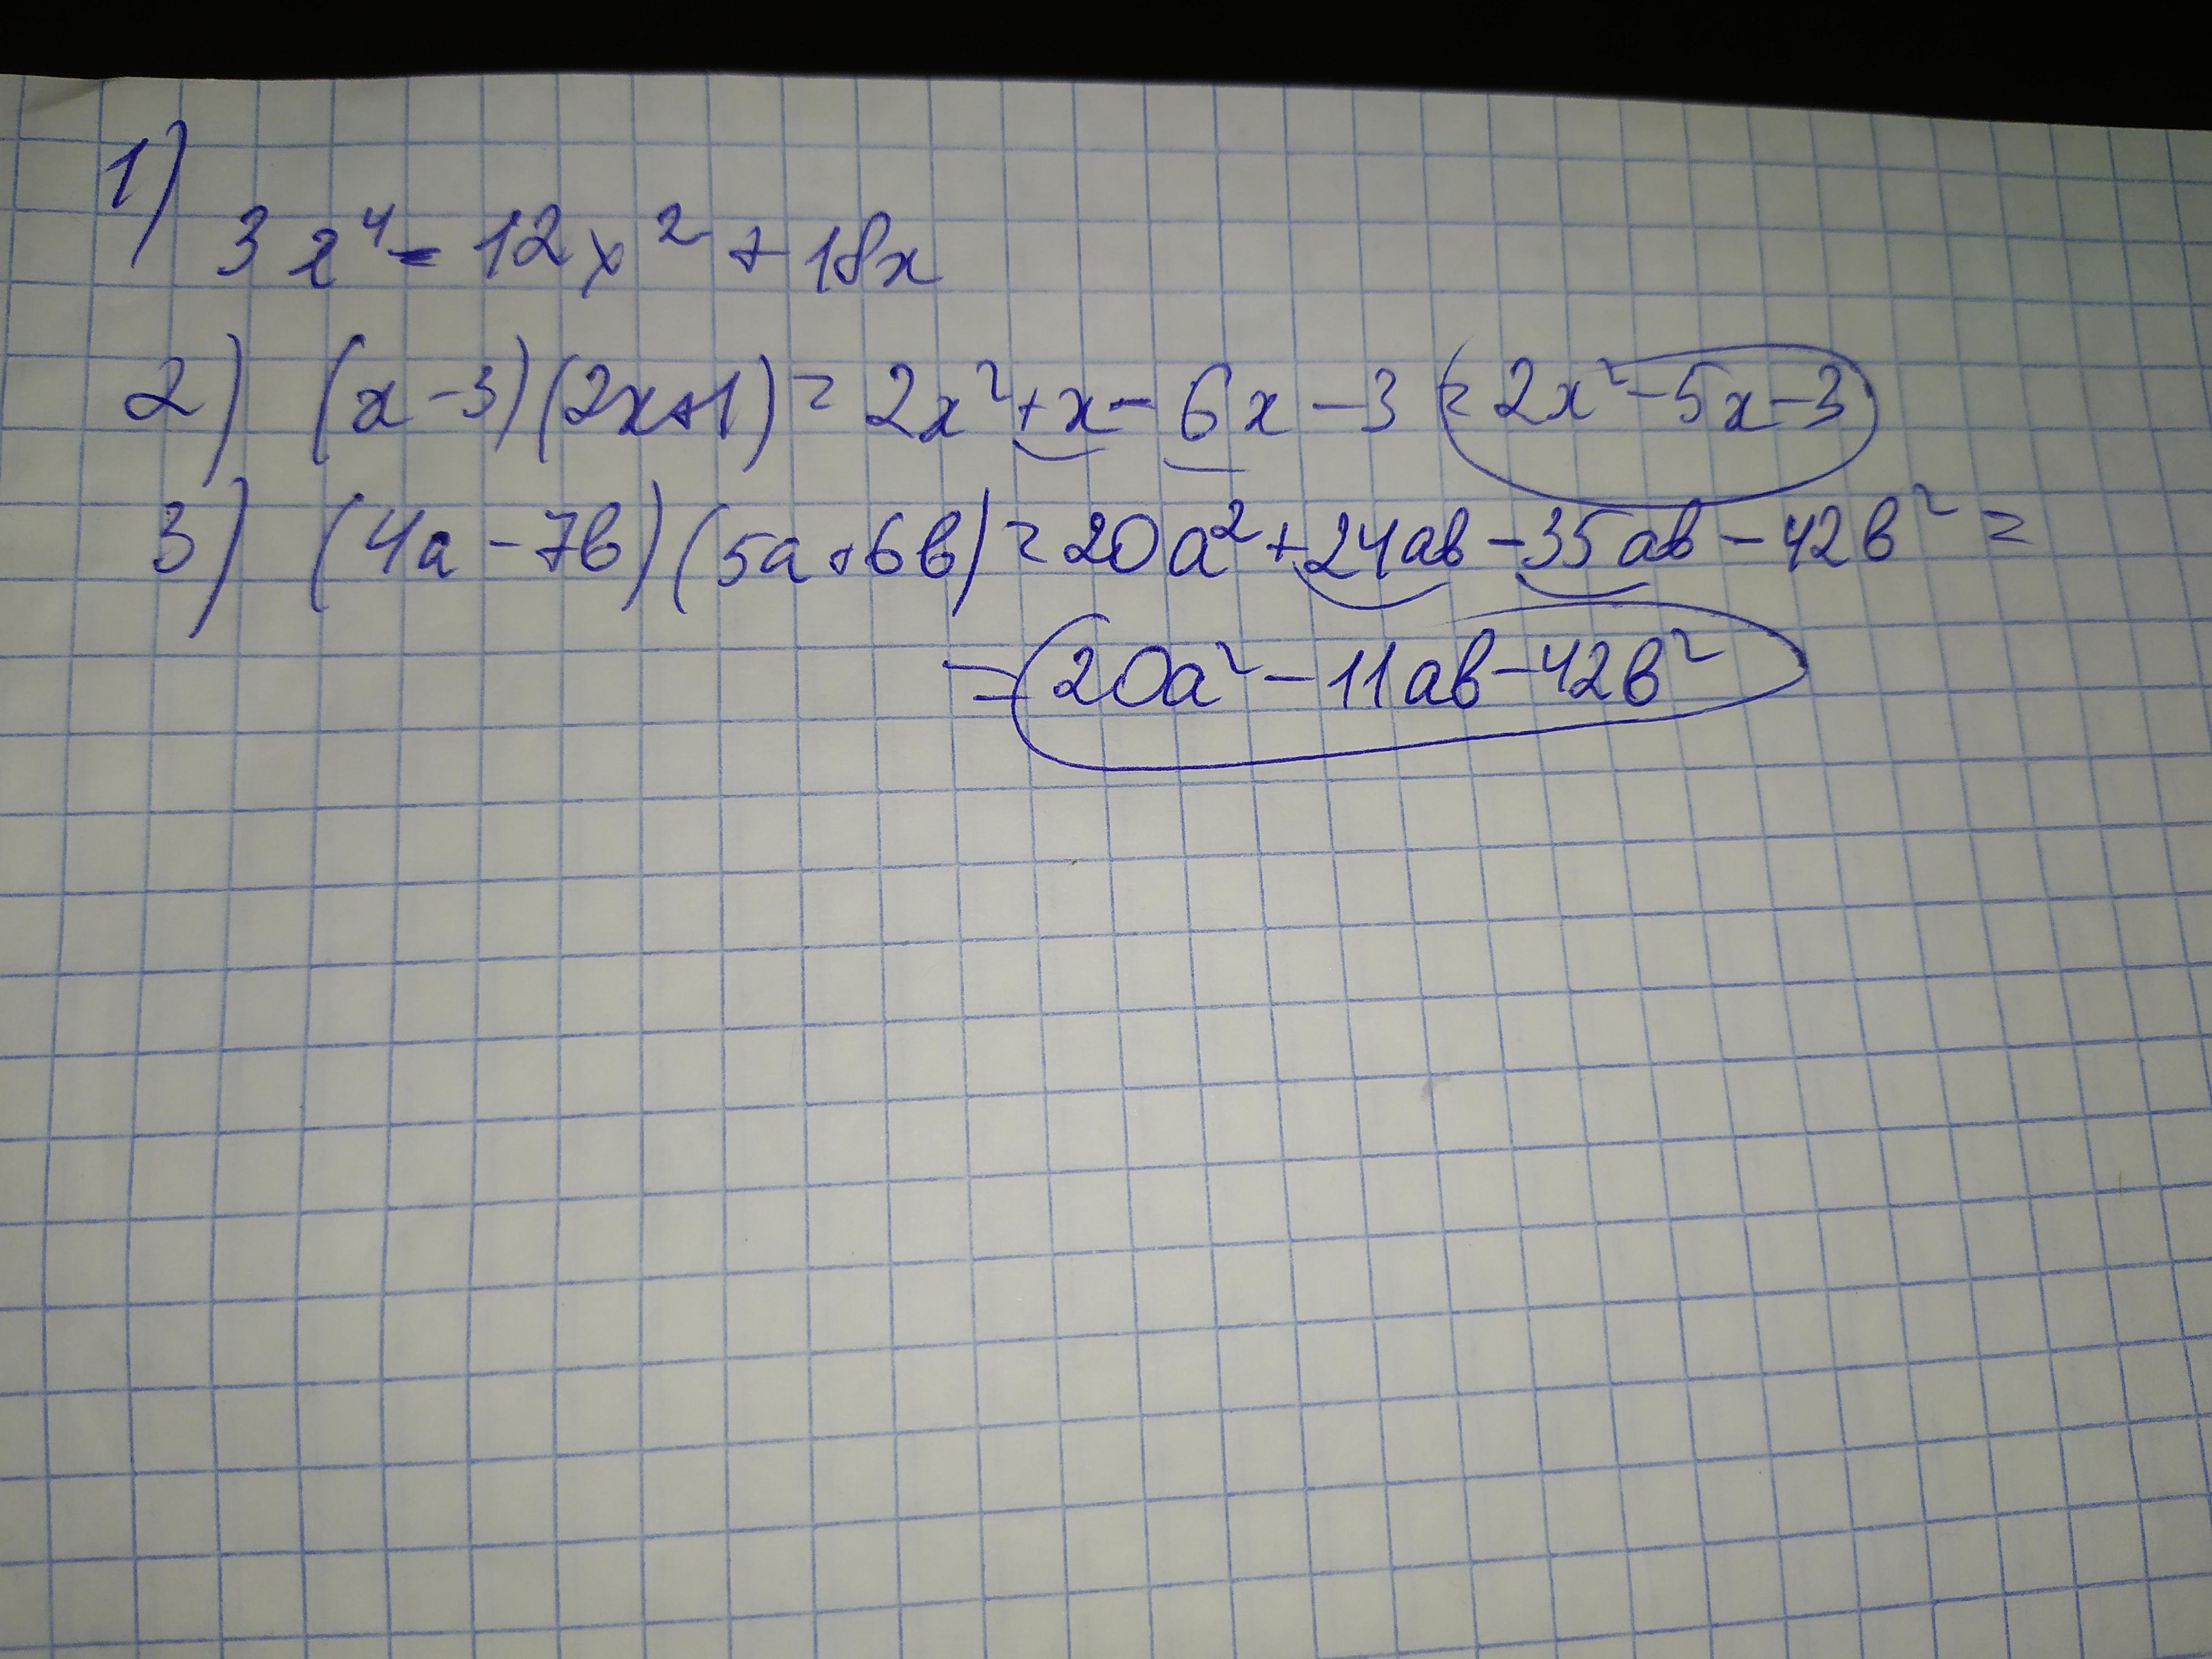 1)
3x⁴ - 12x² + 18x
2) (x - 3)(2x+1) = 2x² + x - 6x - 3 = 2x² - 5x - 3
3) (4a - 7b)(5a + 6b) = 20a² + 24ab - 35ab - 42b² =
= 20a² - 11ab - 42b²